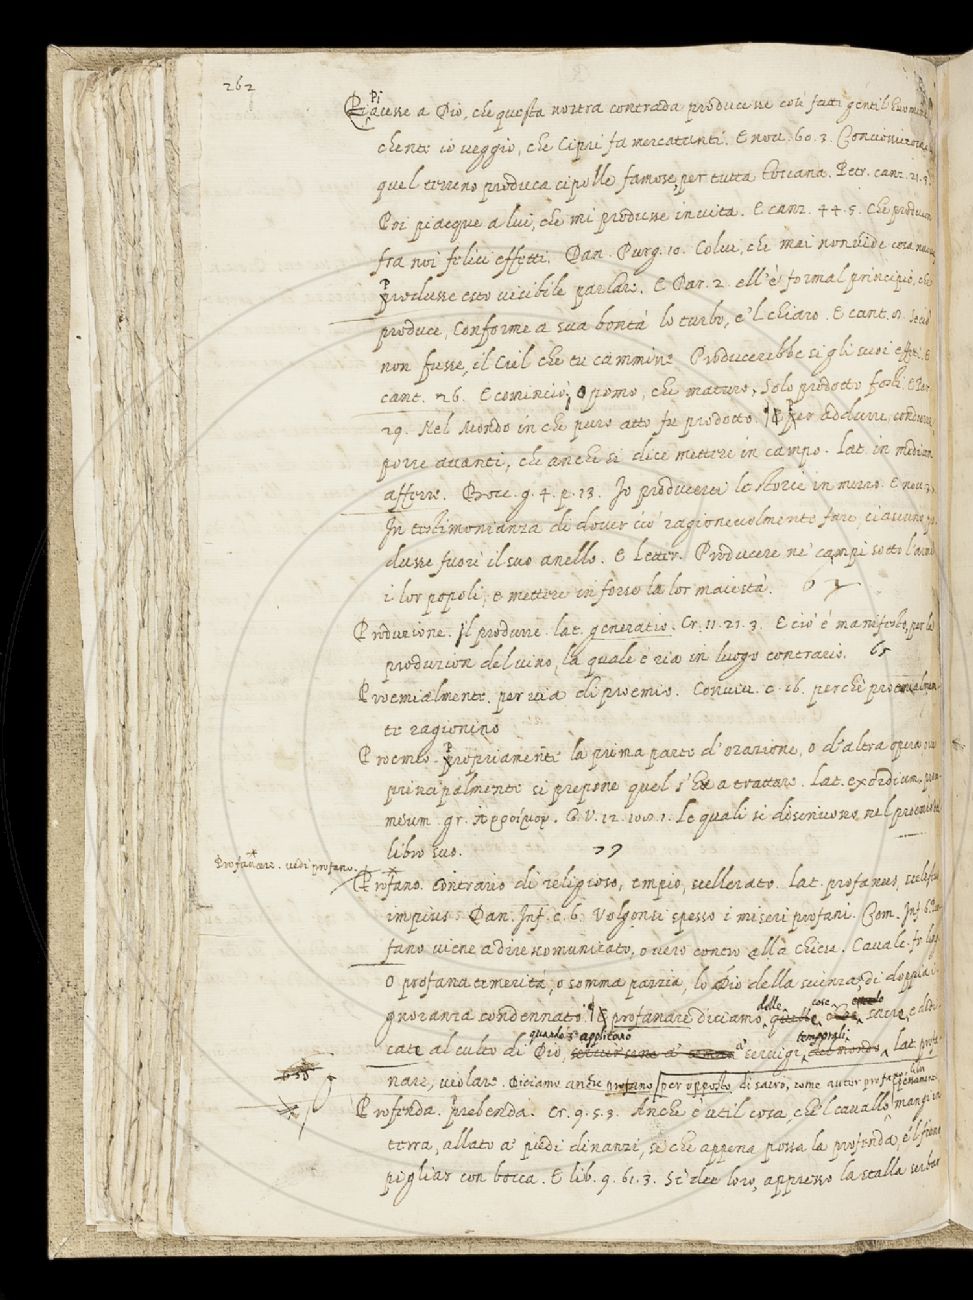 262
Piacesse a Dio, che questa nostra contrada producesse così fatti gentilhuomini
chente io veggio, che Cipri fa mercatanti. E nov. 60. 3. Conciosiecosache
quel terreno produca cipolle famose per tutta Toscana. Petr. canz. 21. 3.
Poi piacque a lui, che mi produsse in vita. E canz. 44. 5. Che producon
fra noi felici effetti. Dan. Purg. 10. Colui, che mai non vide cosa nuova
produsse esto visibile parlare. E Par. 2. ell'è formal principio, che
produce, Conforme a sua bontà lo turbo, e 'l chiaro. E cant. 8. Se ciò
non fusse, il Ciel che tu cammine Producerebbe sì gli suoi effetti. E
cant. 26. E cominciò, O pomo, che maturo, Solo prodotto fosti. E Par.
29. Nel Mondo in che puro atto fu prodotto. ¶ E Per addurre, condurre
porre avanti, che anche si dice mettere in campo. lat. in medium
afferre. Bocc. g. 4. p. 13. Io producerei le storie in mezzo. E nov. 3.
In testimonianza di dover ciò ragionevolmente fare, ciascuno pro
dusse fuori il suo anello. E letter. Producere ne' campi sotto l'armi
i lor popoli, e mettere in forse la lor maestà.
Produzione. Il produrre. lat. generatio. Cr. 11. 21. 3. E ciò è manifesto, per la
produzion del vino, la quale è ria in luogo contrario. 65
Proemialmente. per via di proemio. Conviv. c. 16. perchè proemialmen
te ragionino
Proemio. Propriamente la prima parte d'orazione, o d'altra opera ove
principalmente si propone quel s'ha a trattare. Lat. exordium, proe
mium. gr. προοίμιον. G. V. 12. 108. 1. Le quali si descrivono nel proemio del
libro suo. 77
Profanare. vedi profano.
Profano. Contrario di religioso, empio, scellerato. lat. profanus, scelestus
impius. Dan. Inf. c. 6. Volgonsi spesso i miseri profani. Com. Inf. 6. Pro
fano viene a dire scomunicato, o vero contro alla chiesa. Cavalc. fr. ling.
O profana temerità, o somma pazzia, lo Dio della scienza, di doppia i
gnoranza condennato. ¶ E profanare diciamo, delle cose sacre, e dedi
cate al culto di Dio, quando s'applicano a' servigi temporali, lat. profa
nare, violare. Diciamo anche profano per opposto di sacro, come autor profano, libr
Profenda. Prebenda. Cr. 9. 5. 3. Anche è util cosa, che 'l cavallo mangi in
terra, allato a' piedi dinanzi, sì che appena possa la profenda, e 'l fieno
pigliar con bocca. E lib. 9. 61. 3. Si dee loro, appresso la stalla serbar